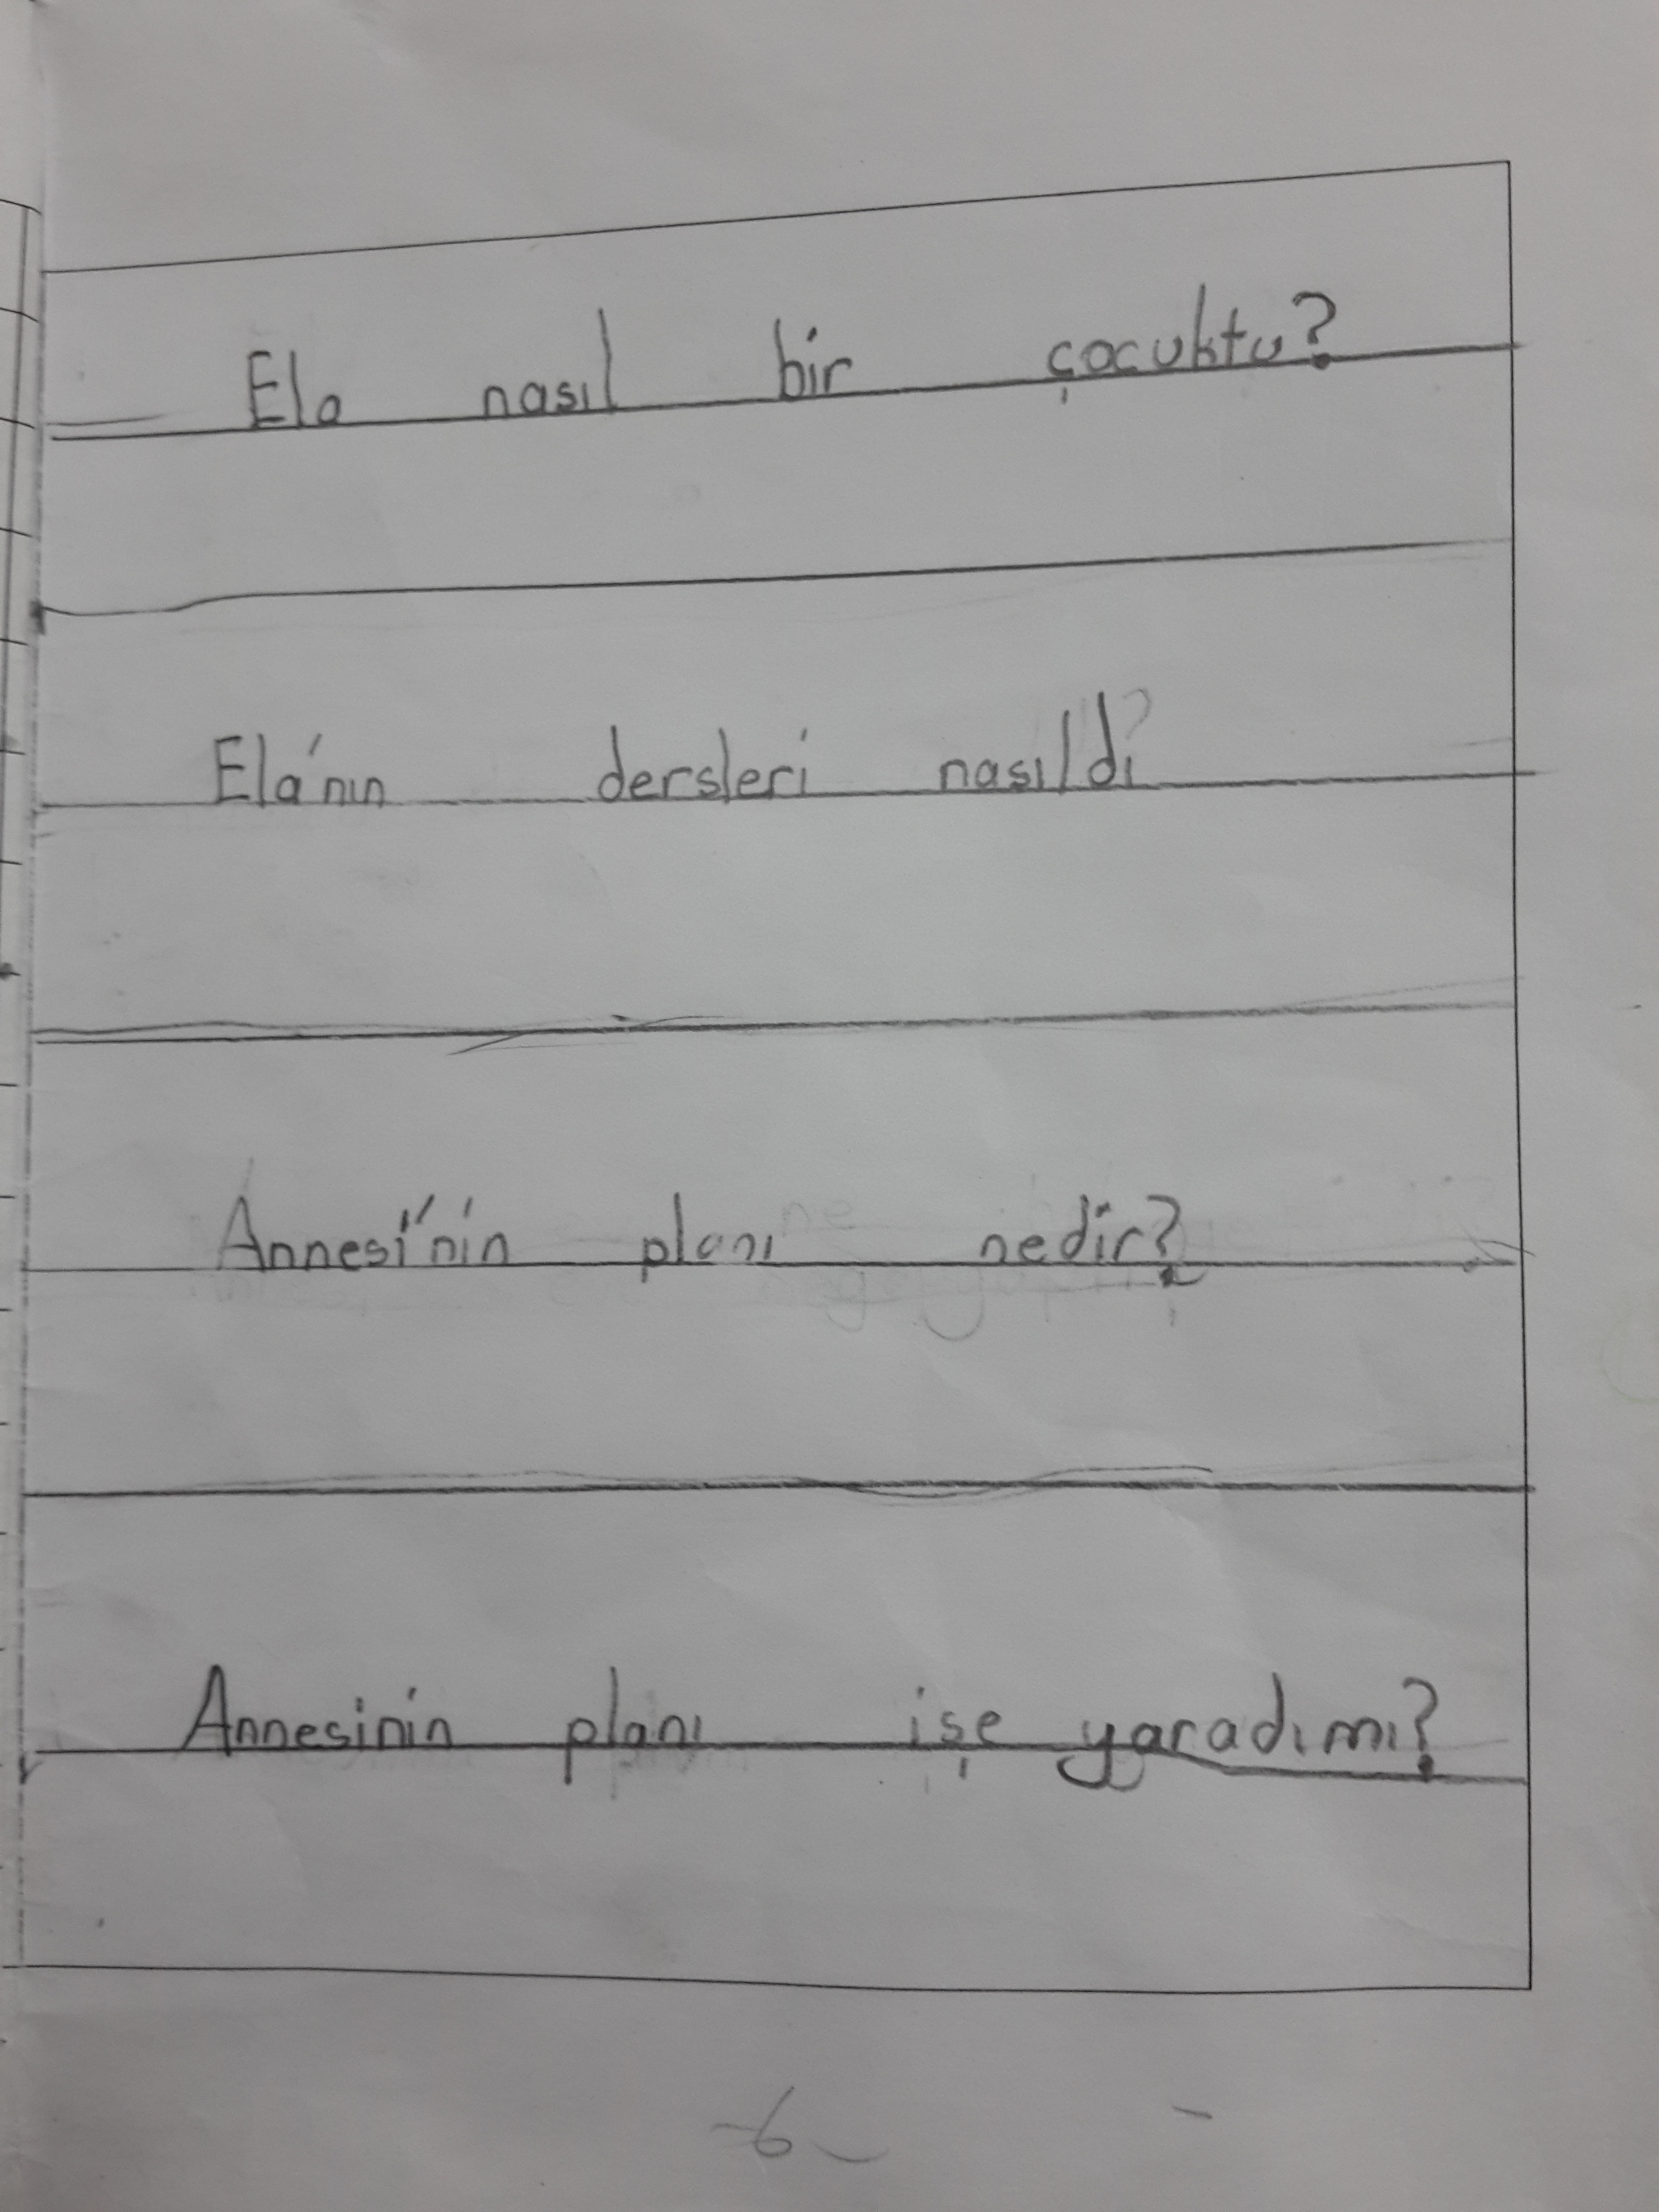 Ela nasıl bir çocuktu?
Ela'nın dersleri nasıldı?
Annesi'nin planı nedir?
Annesinin planı işe yaradımı?
-6-